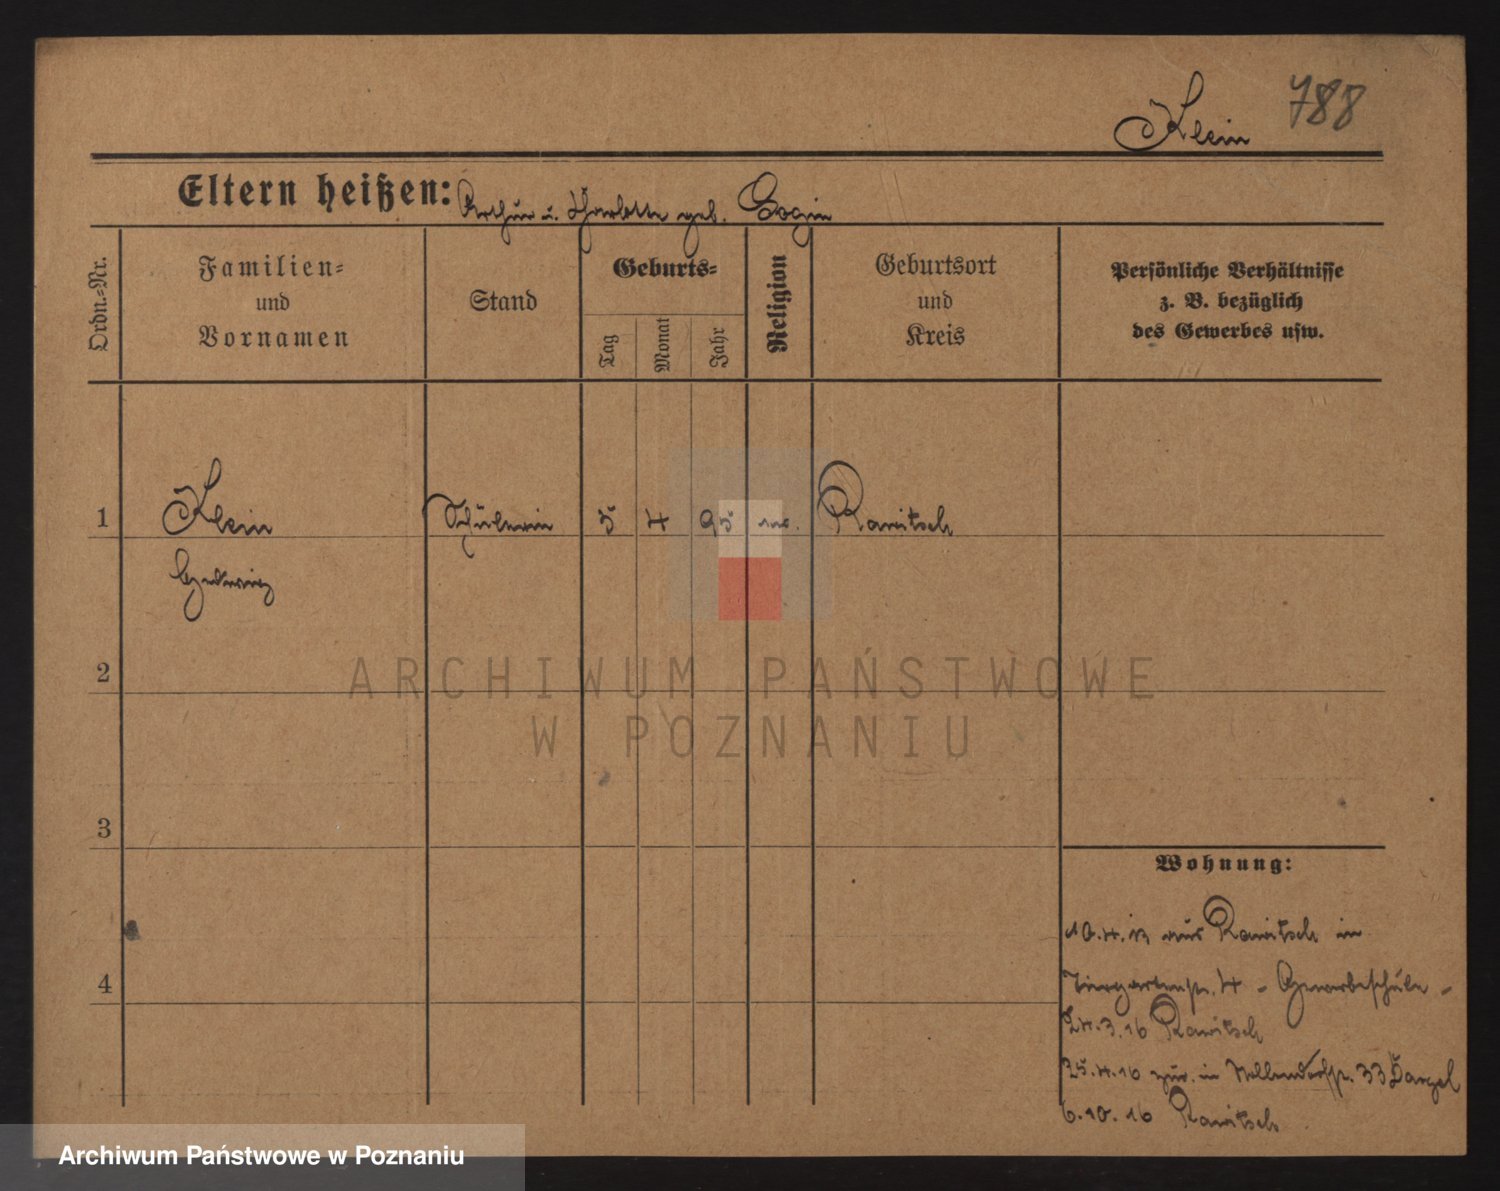 Klein 788
Eltern heißen: Arthur u. Charlotte geb.
Ordn.-Nr.
Familien-
und
Vornamen
Stand
Geburts-
Tag
Monat
Jahr
Religion
Geburtsort
und
Kreis
Persönliche Verhältnisse
z. B. bezüglich
des Gewerbes usw.
1 Klein Schülerin 5 4 95 Rawitsch
Hedwig
2
3
4
Wohnung:
10.4.13 aus Rawitsch in
Tiergartenstr. 4 - Gewerbeschule -
24.3.16 Rawitsch
25.4.16 zur. in 33
6.10.16 Rawitsch
ARCHIWUM PAŃSTWOWE
W POZNANIU
Archiwum Państwowe w Poznaniu